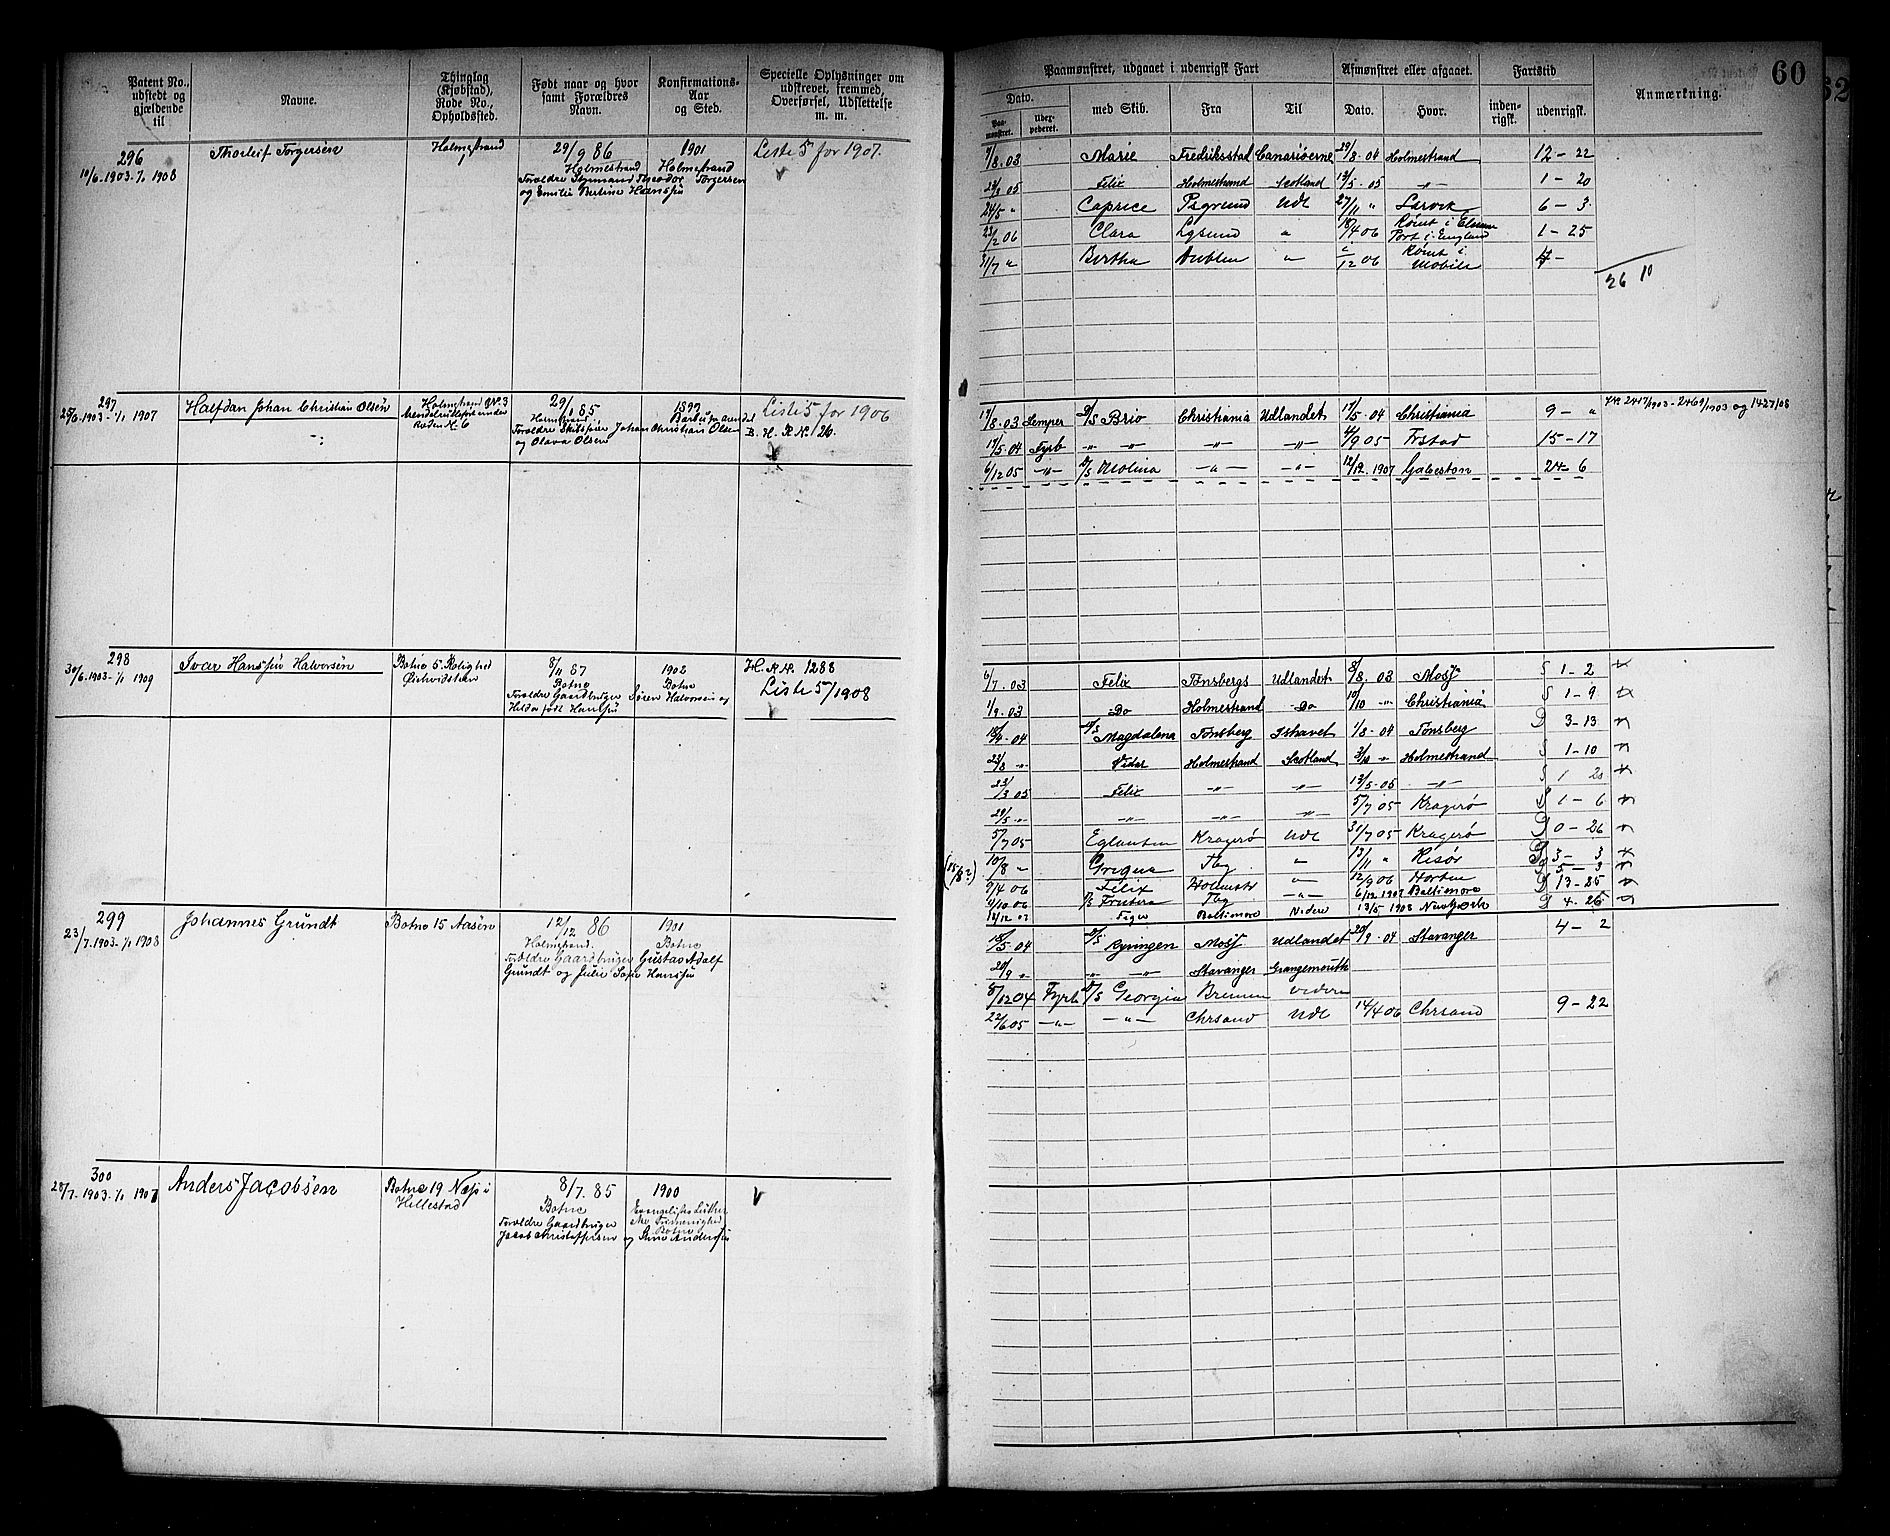 60
Patent No., udstedt og gjældende til
Navne.
Thinglag (Kjøbstad), Rode No., Opholdssted.
Født naar og hvor samt Forældres Navn.
Konfirmations-Aar og Sted.
Specielle Oplysninger om udskrevet, fremmed, Overførsel, Udslettelse m. m.
Paamønstret, udgaaet i udenrigsk Fart
Afmønstret eller afgaaet.
Fartstid
Anmærkning.
Dato.
Paa-mønstret.
med Skib.
Fra
Til
Dato.
Hvor.
inden-rigsk.
udenrigsk.
296
10/6.1903-1/1 1908
Thorleif Torgersen
Holmestrand
29/9 86
Holmestrand
Forældre Styrmand Theodor Torgersen
og Emilie Hansen
1901
Holmestrand
Liste 5 for 1907.
7/8.03 Marie Fredriksstad Canariøerne 29/8.04 Holmestrand 12-22
Felix Holmestrand Scotland 13/5.05 -"- 1-20
24/5 " Caprice Psgrund Udl 27/11 " Larvik 6-3
23/2 06 Clara " 18/4 06 Rømt i Port i England 1-25
31/7 " Bertha Dublin " 12 06 Rømt i Mobile
26 10
297
1903-1/1 1907
Halfdan Johan Christian Olsen
Holmestrand No. 3
Roden No. 6
29/1 85
Holmestrand
Forældre Johan Christian Olsen
og Olava Olsen
1899
Liste 5 for 1906
B. H. R. No. 26.
17/8.03 Lemper D/S Brio Christiania Udlandet 17/5.04 Christiania 9- "
17/5.04 Fyrb " " -"- -"- 4/9 05 Frstad 15-17
6/12 05 -"- D/S Molina -"- -"- 12/12.1907 Galveston 24-6
298
30/6.1903-1/1 1909
Ivar Hansen Halvorsen
Botne 5. Rolighed
8/11 87
Botne
Forældre Gaardbruger Søren Halvorsen og
Helda født Hansen
1902
Botne
H. R. No. 1288
Liste 5/1908
6/7.03 Felix Tønsberg Udlandet 8/8 03 Moss S 1-2
1/9.03 Do Holmestrand Do 10/10 -"- Christiania S 1-9
18/4.04 D/S Magdalena Tønsberg Ishavet 1/8.04 Tønsberg D 3-13
23/8 " Vidar Holmestrand Scotland 3/10 " Holmestrand S 1-10
23/3 05 Felix -"- -"- 13/5.05 -"- S 1 20
29/5 " -"- -"- -"- 5/7 05 Kragerø S 1-6
5/7 05 Eglantin Kragerø Udl 31/7 05 Kragerø 0-26
(15/8?) 10/8 " Tbg " 13/11 " Risør 3-3
9/4 06 Felix Holmestr -"- 12/9 06 Horten 5-3
4/10 06 Tbg -"- 6/12 1907 Baltimore 13-25
12/12 07 Baltimore Videre 13/5 1908 New York 4-26
299
23/7.1903-1/1 1908
Johannes Grundt
Botne 15 Aasen
12/12 86
Holmestrand.
Forældre Gaardbruger Gustav Adolf
Grundt og Julie Sofie Hansen
1901
Botne
18/5.04 D/S Bygningen Moss Udlandet 20/9.04 Stavanger 4-2
20/9 " " -"- Stavanger Grangemouth
8/12 04 Fyrb D/S Georgia Bremen videre
22/6 05 -"- -"- Chrsand Udl 14/4 06 Chrsand 9-22
300
28/7.1903-1/1 1907
Anders Jacobsen
Botne 19 Næss i
Hillestad
8/7.85
Botne
Forældre Gaardbruger
Jacob Christoffersen og Anne Andersen
1900
Evangelisk Luther
ske Frimenighed
Botne